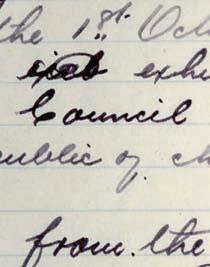 the 1st. Oc
exh
Council
ublic of ch
from the